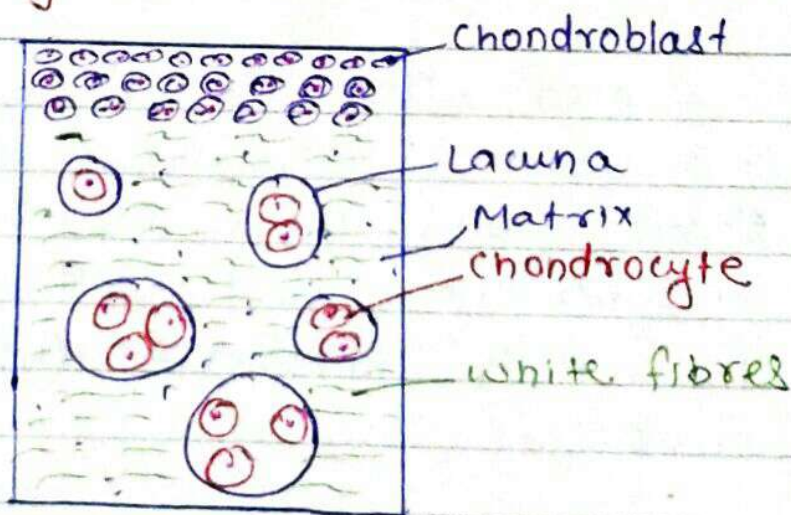 Chondroblast
Lacuna
Matrix
Chondrocyte
White fibres